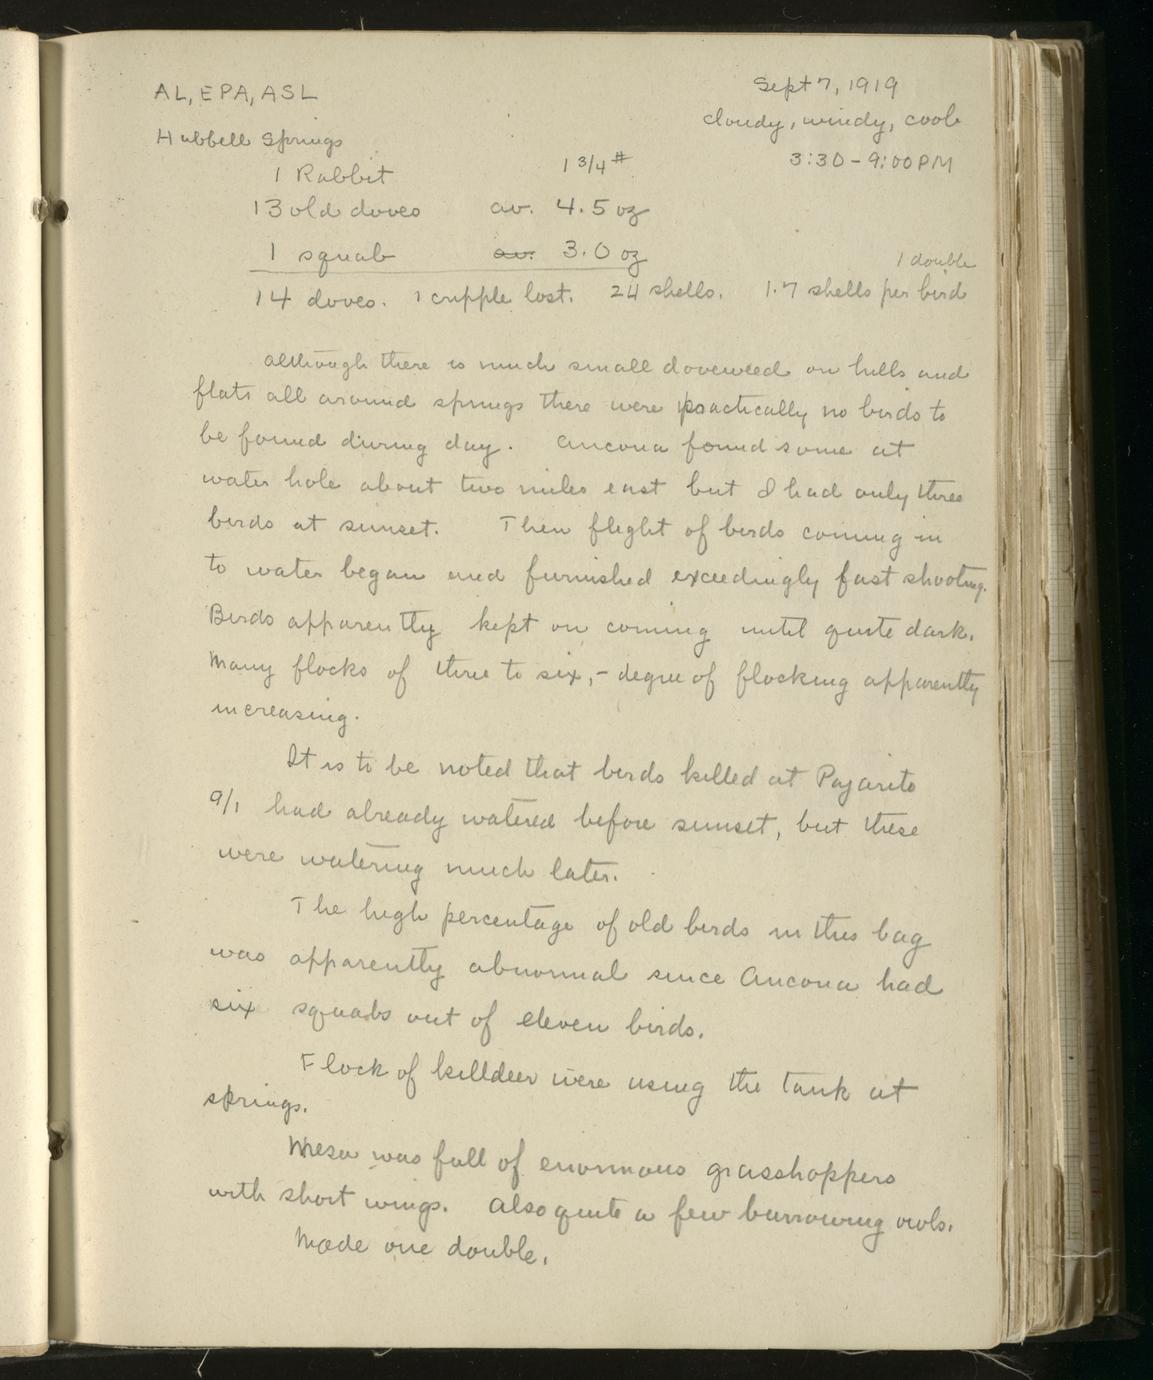 AL, EPA, ASL
Sept 7, 1919
cloudy, windy, cool
Hubbell Springs
3:30 - 9:00 PM
1 Rabbit 1 3/4 #
13 old doves av. 4.5 oz
1 squab av. 3.0 oz
1 double
14 doves. 1 cripple lost. 24 shells. 1.7 shells per bird
Although there is much small doveweed on hills and
flats all around springs there were practically no birds to
be found during day. Ancona found some at
water hole about two miles east but I had only three
birds at sunset. Then flight of birds coming in
to water began and furnished exceedingly fast shooting.
Birds apparently kept on coming until quite dark.
Many flocks of three to six, - degree of flocking apparently
increasing.
It is to be noted that birds killed at Pajarito
9/1 had already watered before sunset, but these
were watering much later.
The high percentage of old birds in this bag
was apparently abnormal since Ancona had
six squabs out of eleven birds.
Flock of killdeer were using the tank at
springs.
Mesa was full of enormous grasshoppers
with short wings. Also quite a few burrowing owls.
Made one double.